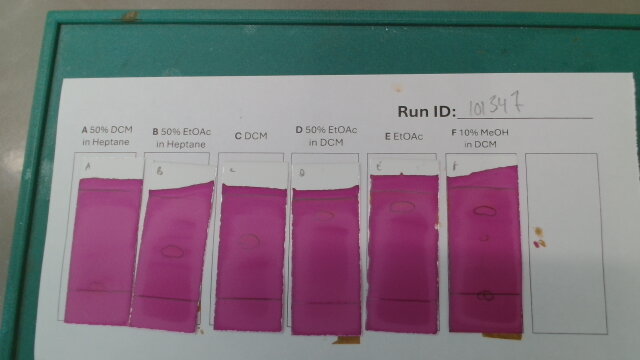 Run ID: 101347
A 50% DCM in Heptane
B 50% EtOAc in Heptane
C DCM
D 50% EtOAc in DCM
E EtOAc
F 10% MeOH in DCM
A
B
C
D
E
F